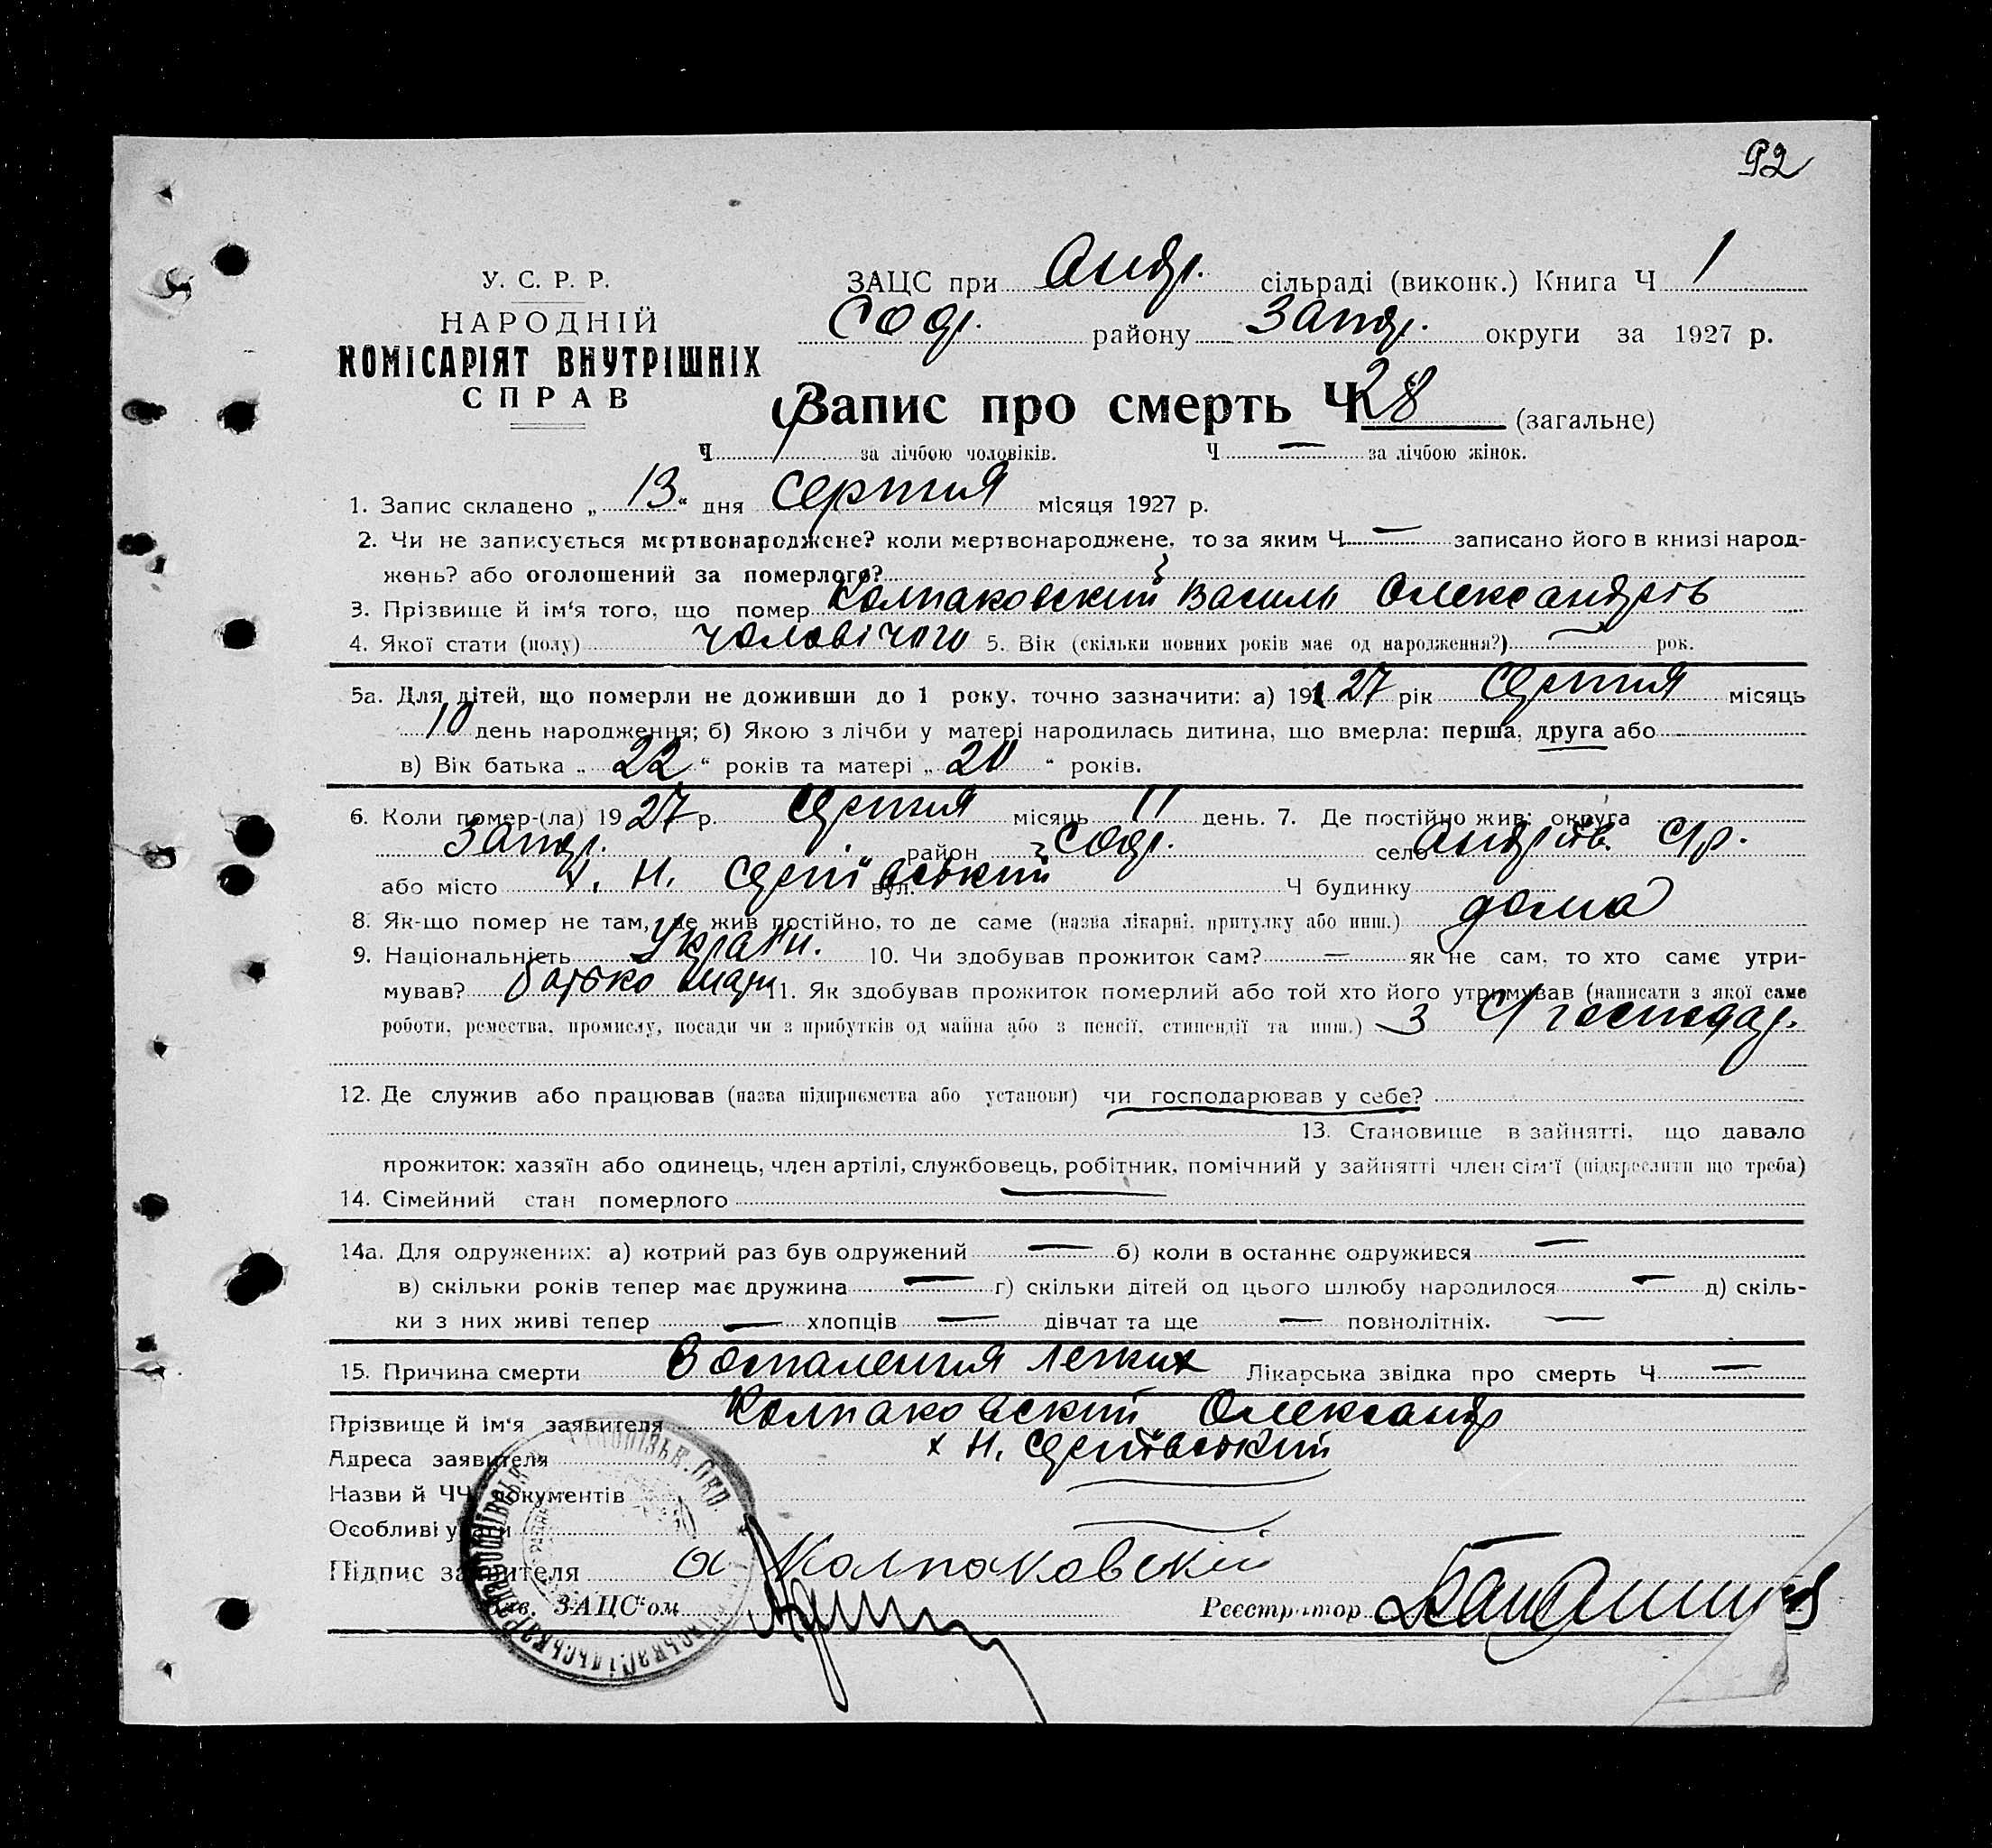 92
У. С. Р. Р.
НАРОДНІЙ
КОМІСАРІЯТ ВНУТРІШНІХ
СПРАВ
ЗАЦС при Андр. сільраді (виконк.) Книга Ч 1
Соф. району Запор. округи за 1927 р.
Запис про смерть Ч 28 (загальне)
Ч за лічбою чоловіків. Ч — за лічбою жінок.
1. Запис складено „ 13 “ дня Серпня місяця 1927 р.
2. Чи не записується мертвонароджене? коли мертвонароджене, то за яким Ч — записано його в книзі народ-
жень? або оголошений за померлого?
3. Прізвище й ім‘я того, що помер Колпаковский Василь Олександров
4. Якої стати (полу) чоловічого 5. Вік (скільки повних років має од народження?) — рок.
5а. Для дітей, що померли не доживши до 1 року, точно зазначити: а) 1927 рік Серпня місяць
10 день народження; б) Якою з лічби у матері народилась дитина, що вмерла: перша, друга або
в) Вік батька „ 22 “ років та матері „ 20 “ років.
6. Коли помер-(ла) 1927 р. Серпня місяць 11 день. 7. Де постійно жив: округа
Запор. район Соф. село Андріїв. С/р.
або місто х. Н. Сергіївський вул. Ч будинку
8. Як-що помер не там, де жив постійно, то де саме (назва лікарні, притулку або инш.) дома
9. Національність Україн. 10. Чи здобував прожиток сам? — як не сам, то хто саме утри-
мував? батько мати 11. Як здобував прожиток померлий або той хто його утримував (написати з якої саме
роботи, ремества, промислу, посади чи з прибутків од майна або з пенсії, стипендії та инш.) З С/господар.
12. Де служив або працював (назва підприємства або установи) чи господарював у себе?
13. Становище в зайнятті, що давало
прожиток: хазяїн або одинець, член артілі, службовець, робітник, помічний у зайнятті член сім‘ї (підкреслити що треба)
14. Сімейний стан померлого —
14а. Для одружених: а) котрий раз був одружений — б) коли в останнє одружився —
в) скільки років тепер має дружина — г) скільки дітей од цього шлюбу народилося — д) скіль-
ки з них живі тепер — хлопців — дівчат та ще — повнолітніх. —
15. Причина смерти Воспаления легких Лікарська звідка про смерть Ч —
Прізвище й ім‘я заявителя Колпаковский Олександр
Адреса заявителя х Н. Сергіївський
Назви й ЧЧ документів
Особливі уваги
Підпис заявителя а Колпаковскій
Зав. ЗАЦС‘ом Реєстратор